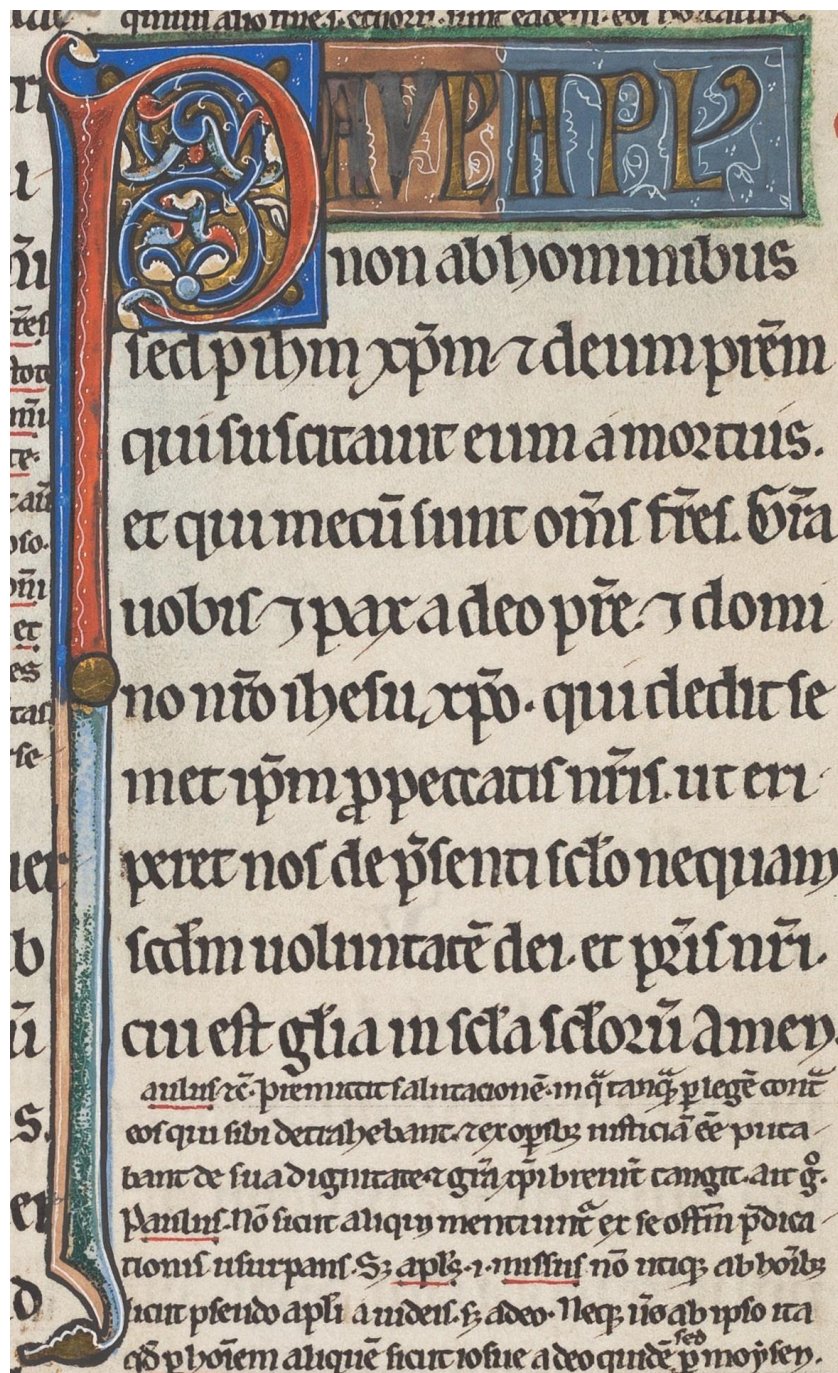 PAUL APL
non ab hominibus
sed p ihm xp̄m ⁊ deum pr̄em
qui suscitauit eum a mortuis.
et qui mecū sunt om̄s fr̄es. Gr̄a
uobis ⁊ pax a deo pr̄e. ⁊ domi
no nr̄o ihesu xp̄o. qui dedit se
met ip̄m ꝓ peccatis nr̄is. ut eri
peret nos de p̄senti sc̄lo nequam
scd̄m uoluntatē dei. et pr̄is nr̄i.
cui est gl̄ia in sc̄la sc̄lorū Amen.
aulus ⁊c̄. premittit salutacionē. in q̄ tanq̄ ꝑ legē cont̄
eos qui sibi detrahebant. ⁊ ex oꝑibꝫ iusticiā ēe puta
bant de sua dignitate ⁊ gr̄a xp̄i breuit̄ tangit. ait g̊.
Paulus. Nō sicut aliqui mentiunt̄ ex se offm̄ p̄dica
tionis usurpans. Sꝫ apl̄s .i. missus nō utiqꝫ ab hoībꝫ
sicut pseudo apl̄i a iudeis. sꝫ a deo. Neqꝫ ū̊ ab ipso ita
qd̄ ꝑ hoīem aliquē sicut iosue a deo quidē sed ꝑ moysen.